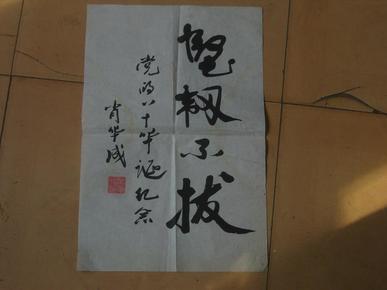 坚韧不拔
党的八十华诞纪念
肖华成